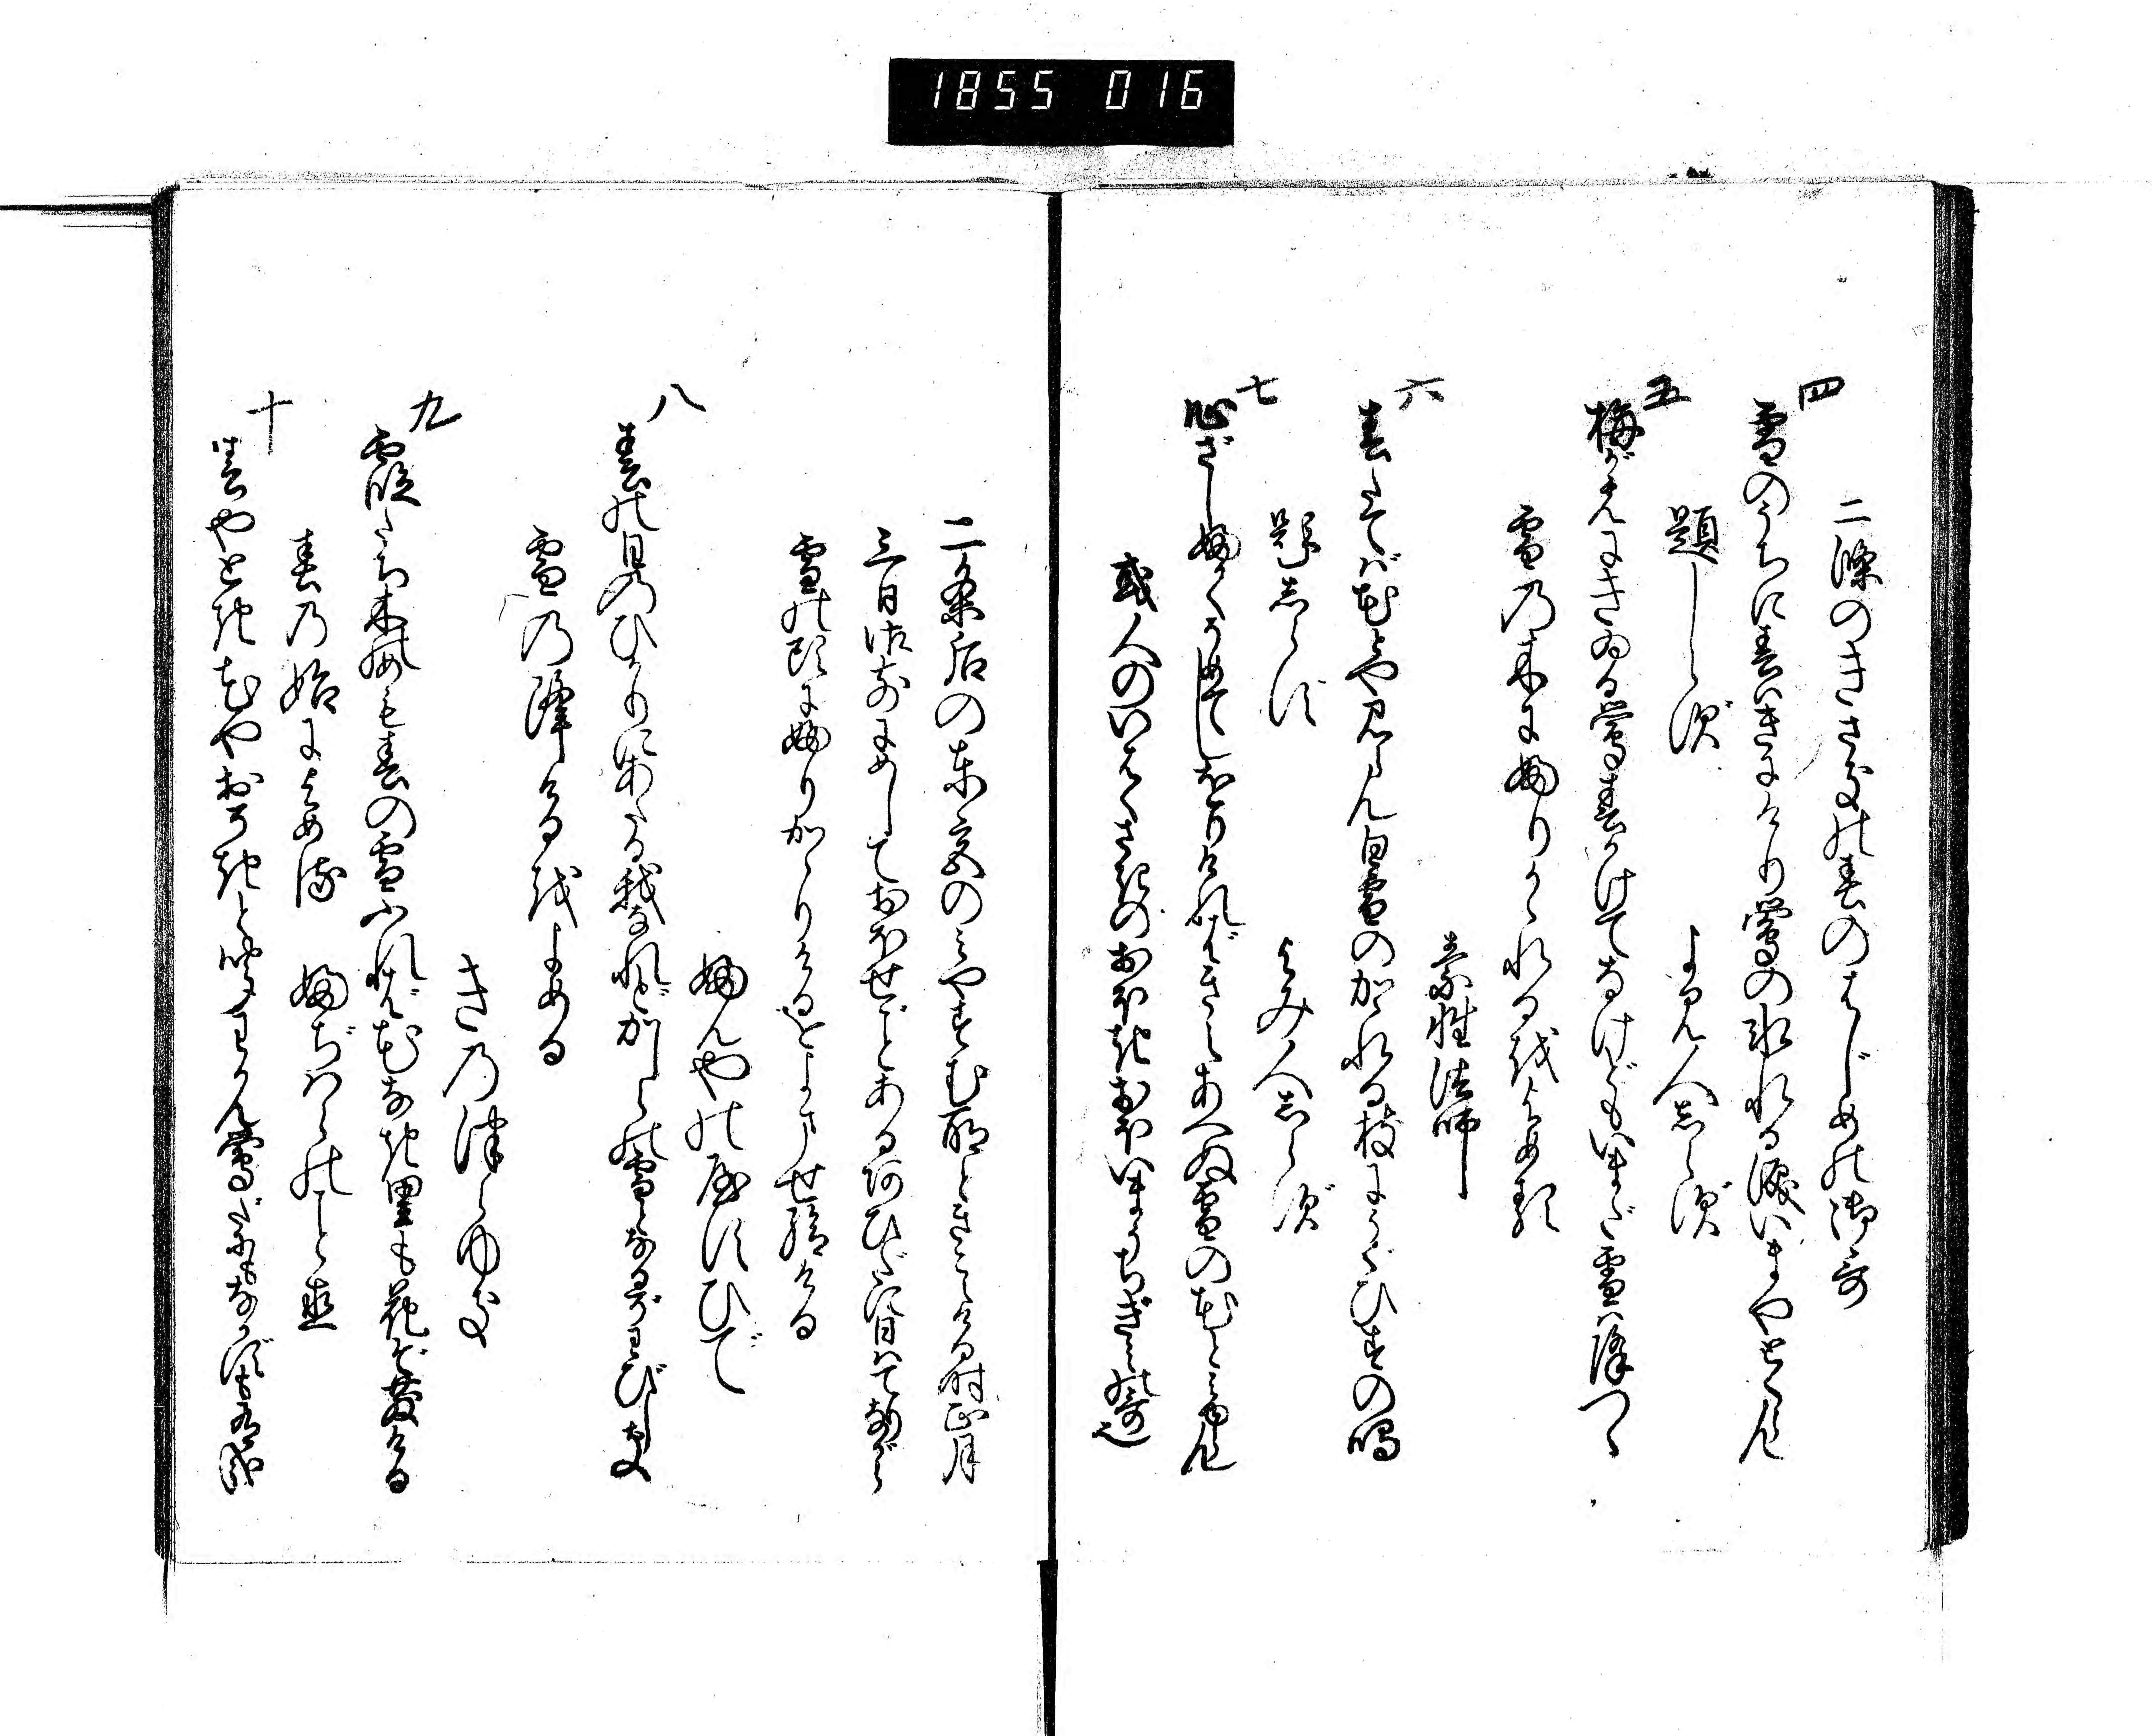 1855 016
二條のきさきの春のはじめの御哥
四
雪のうちに春はきにけり鶯の氷れる涙いまやとくらん
題しらず　よみ人しらず
五
梅がえにきゐる鶯春かけてなけどもいまだ雪は降つゝ
雪の木にふりかゝれるをよめる
素性法師
六
春たてば花とや見らん白雪のかゝれる枝にうぐひすの鳴
題しらず　よみ人しらず
七
心ざしふかくそめてしをりければきえあへぬ雪の花とみゆらん
或人のいはくさきのおほきおほいまうちぎみの哥也
二条后の東宮のみやすむ所ときこえける時正月
三日御前にめしておほせごとあるあひだに日はてりながら
雪の頭にふりかゝりけるをよませ給ける
ふんやのやすひで
八
春の日のひかりにあたる我なれどかしらの雪となるぞわびしき
雪の降けるをよめる
きのつらゆき
九
霞たち木のめも春の雪ふれば花なき里も花ぞ散ける
春の始によめる　ふぢはらのことなほ
十
春やとき花やおそきと聞わかん鶯だにもなかずも有哉